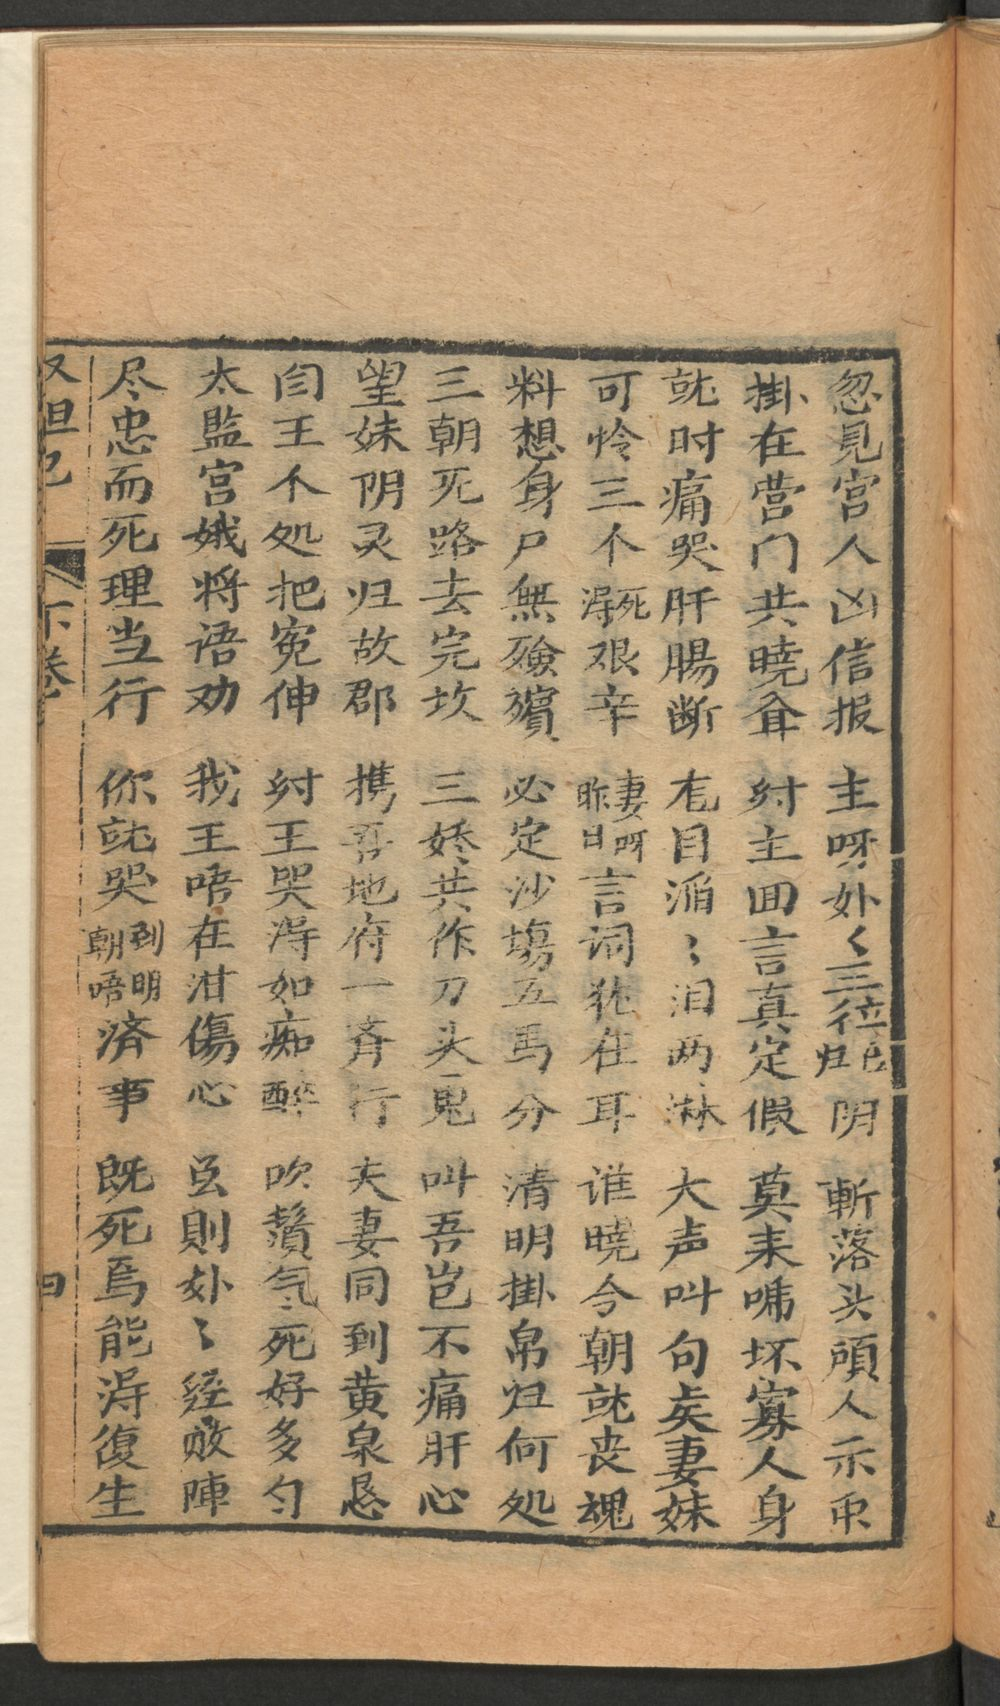 忽見宫人凶信报 主呀外〻三位已归阴 斬落头頭人示𠕇
掛在营门共曉𦕅 紂主囬言真定假 莫来嚇坏寡人身
就时痛哭肝腸断 冇目滔〻泪两淋 大声叫句戾妻妹
可怜三个死得艰辛 妻呀昨日言词犹在耳 谁曉今朝就丧魂
料想身尸無殮殯 必定沙塲五馬分 清明掛帛归何処
三朝死路去完坟 三娇共作刀头鬼 叫吾岂不痛肝心
望妹阴灵归故郡 携吾地府一齐行 夫妻同到黄泉恳
闫王个処把冤伸 紂王哭得如痴醉 吹鬚气死好多匀
太监宫娥将语劝 我王唔在泔傷心 呂則外〻経敗陣
尽忠而死理当行 你就哭到明朝唔済事 既死焉能得復生
又妲己 下卷 四